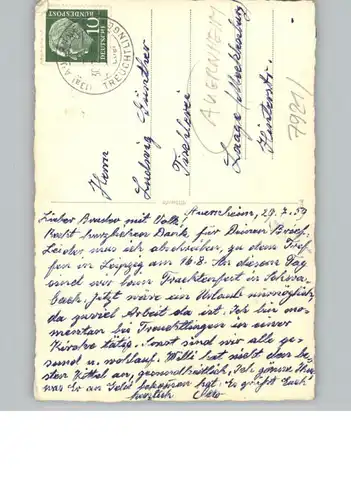 10
DEUTSCHE
BUNDESPOST
TREUCHTLINGEN
Herrn
Ludwig Günther
Tischlerei
Laage / Mecklenburg
Hinterstr.
(AUERNHEIM)
7921/
Auernheim, 29.7.59
Lieber Bruder mit Volk!
Recht herzlichen Dank für Deinen Brief.
Leider mus ich abschreiben, zu dem Tref
fen in Leipzig am 16.8. An diesem Tag
sind wir beim Trachtenfest in Schwa
bach. Jetzt wäre ein Urlaub unmöglich,
da zuviel Arbeit da ist. Ich bin mo
mentan bei Treuchtlingen in einer
Kirche tätig. Sonst sind wir alle ge
sund u. wohlauf. Willi hat nicht den be
sten Kittel an, gesundheitlich, Ich gönne
was Er an Geld bekommen hat. Es grüßt Euch
herzlich